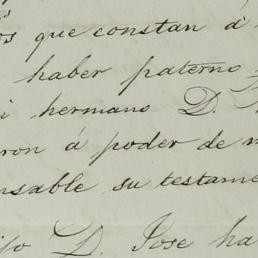 os que constan á
haber paterno
i hermano D.
ron á poder de m
nsable su testame
D. Jose ha